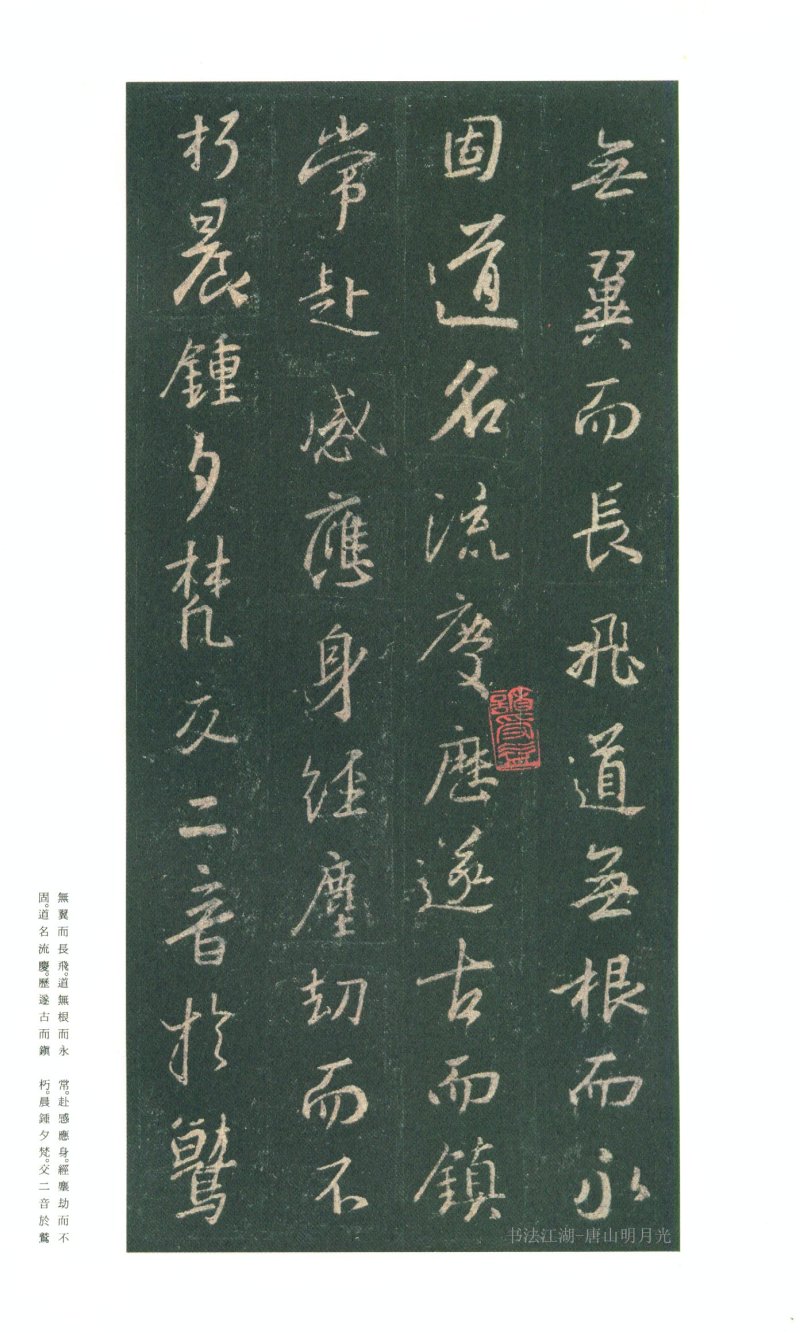 無翼而長飛道無根而永
固道名流慶歷遂古而鎮
常赴感應身經塵劫而不
朽晨鍾夕梵交二音於鷲
無翼而長飛。道無根而永
固。道名流慶。歷遂古而鎮
常。赴感應身。經塵劫而不
朽。晨鍾夕梵。交二音於鷲
书法江湖-唐山明月光